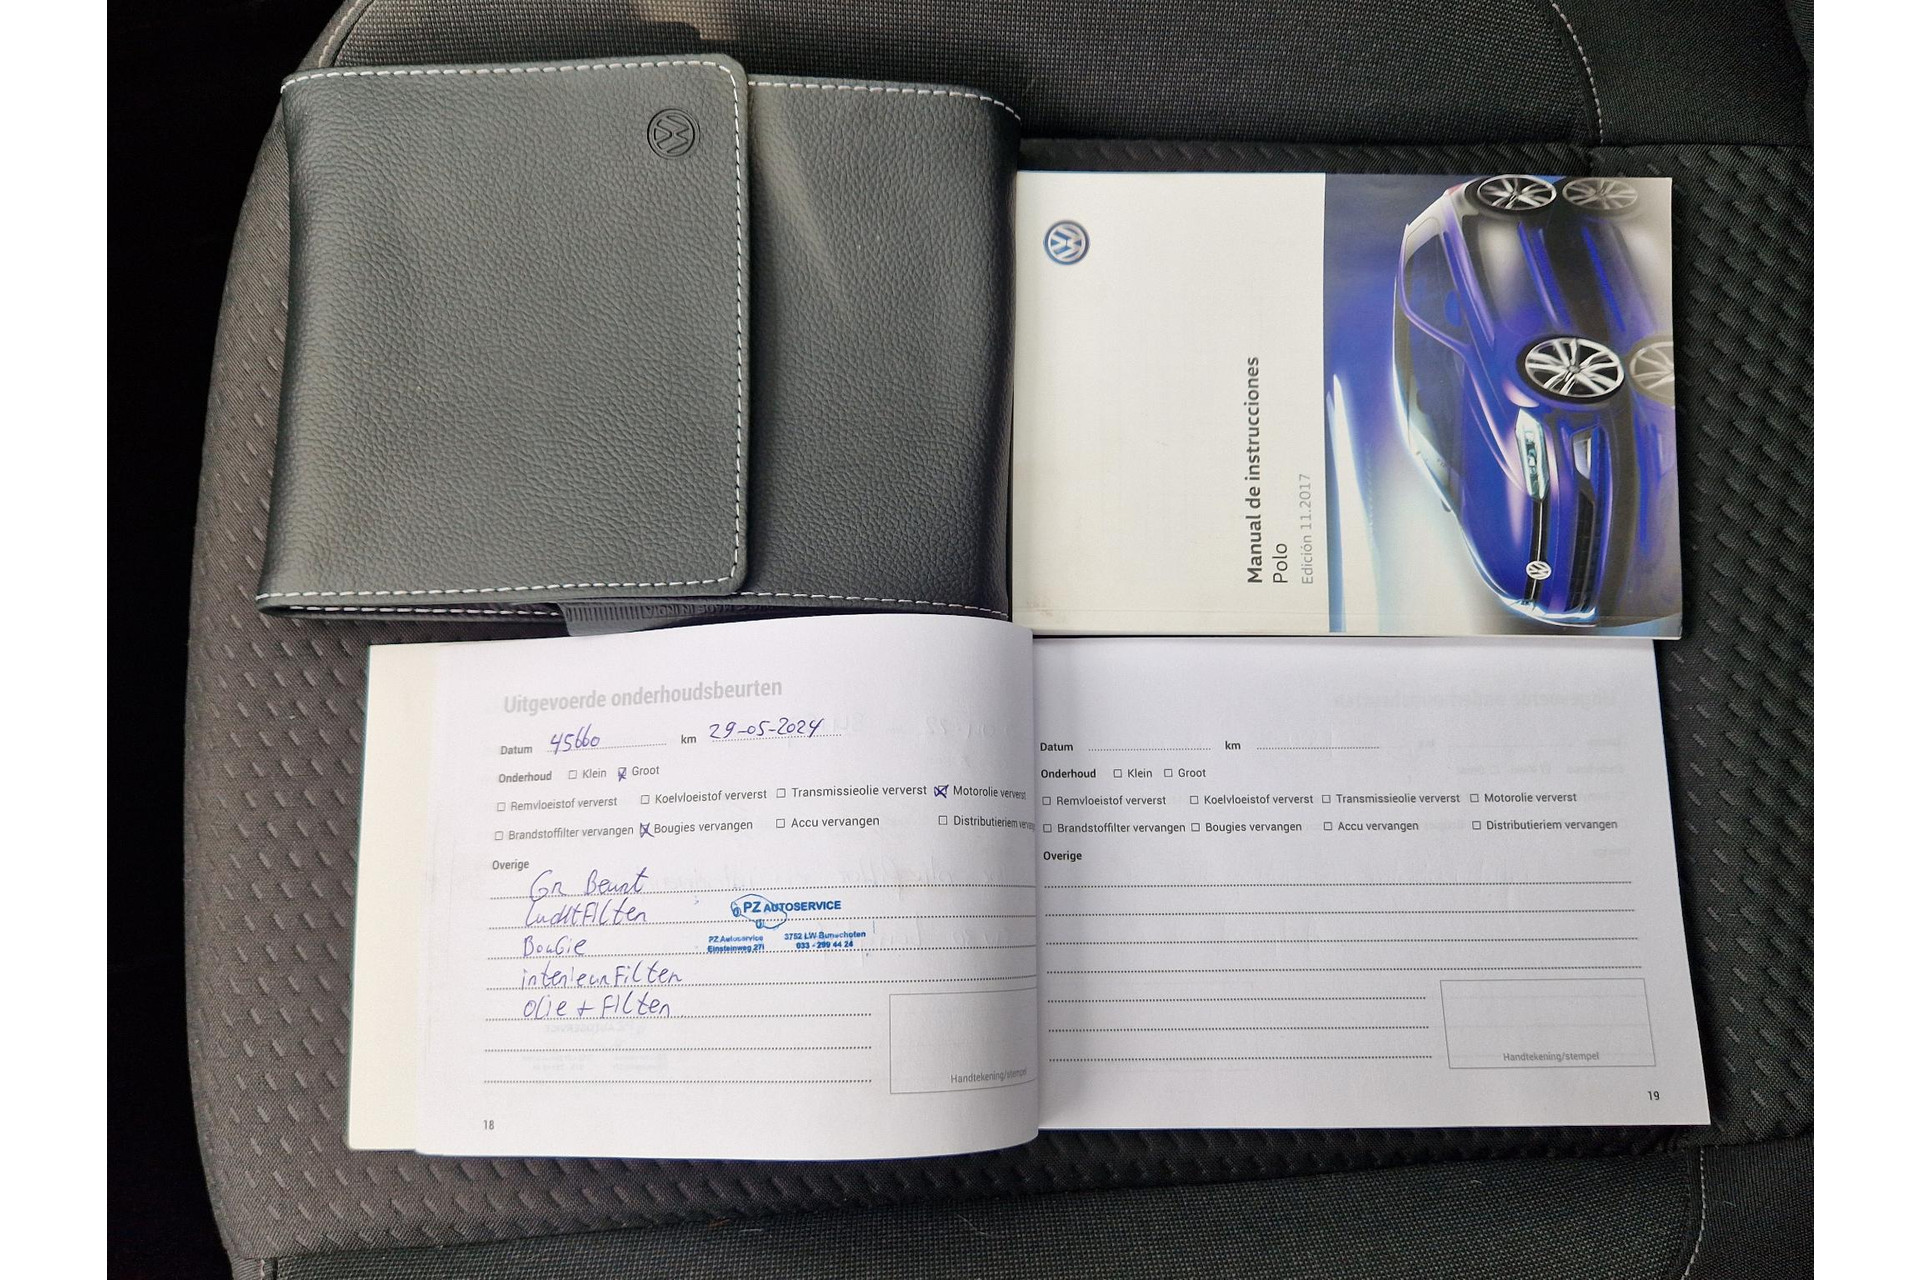 Manual de instrucciones
Polo
Edición 11.2017
Uitgevoerde onderhoudsbeurten
Datum 45660 km 29-05-2024
Onderhoud Klein Groot
Remvloeistof ververst Koelvloeistof ververst Transmissieolie ververst Motorolie ververst
Brandstoffilter vervangen Bougies vervangen Accu vervangen Distributieriem
Overige
Gr Beurt
LuchtFilter
BouGie
interieurFilter
Olie + Filter
PZ AUTOSERVICE
PZ Autoservice 3752 LW Bunschoten
Einsteinweg 27i 033 - 299 44 24
Handtekening/stempel
18
Datum km
Onderhoud Klein Groot
Remvloeistof ververst Koelvloeistof ververst Transmissieolie ververst Motorolie ververst
Brandstoffilter vervangen Bougies vervangen Accu vervangen Distributieriem vervangen
Overige
Handtekening/stempel
19